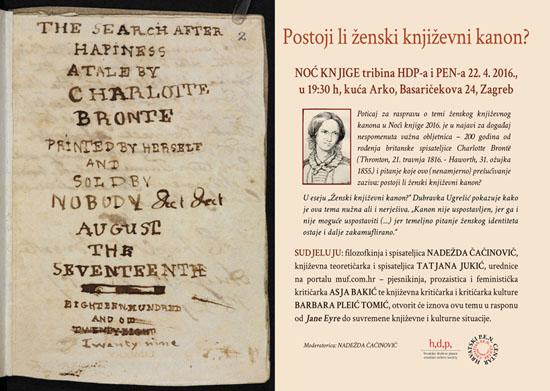 2
THE SEARCH AFTER
HAPINESS
A TALE BY
CHARLOTTE
BRONTE
PRINTED BY HERSELF
AND
SOLD BY
NOBODY &ct &ct
AUGUST
THE
SEVENTEENTH
EIGHTEEN HUNDRED
AND
TWENTY EIGHT
Twenty nine
Postoji li ženski književni kanon?
NOĆ KNJIGE tribina HDP-a i PEN-a 22. 4. 2016.,
u 19:30 h, kuća Arko, Basaričekova 24, Zagreb
Poticaj za raspravu o temi ženskog književnog
kanona u Noći knjige 2016. je u najavi za događaj
nespomenuta važna obljetnica – 200 godina od
rođenja britanske spisateljice Charlotte Brontë
(Thronton, 21. travnja 1816. - Haworth, 31. ožujka
1855.) i pitanje koje ovo (nenamjerno) prešućivanje
zaziva: postoji li ženski književni kanon?
U eseju „Ženski književni kanon?" Dubravka Ugrešić pokazuje kako
je ova tema nužna ali i nerješiva. „Kanon nije uspostavljen, jer ga i
nije moguće uspostaviti (...) jer temeljno pitanje ženskog identiteta
ostaje i dalje zakamuflirano."
SUDJELUJU: filozofkinja i spisateljica NADEŽDA ČAČINOVIĆ,
književna teoretičarka i spisateljica TATJANA JUKIĆ, urednice
na portalu muf.com.hr – pjesnikinja, prozaistica i feministička
kritičarka ASJA BAKIĆ te književna kritičarka i kritičarka kulture
BARBARA PLEIĆ TOMIĆ, otvorit će iznova ovu temu u rasponu
od Jane Eyre do suvremene književne i kulturne situacije.
Moderatorica: NADEŽDA ČAČINOVIĆ
h,d,p,
hrvatsko društvo pisaca
croatian writers society
HRVATSKI P.E.N. CENTAR